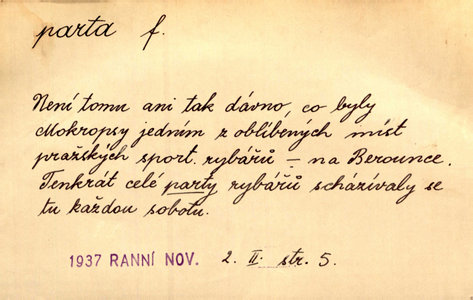 parta f.
Není tomu ani tak dávno, co byly
Mokropsy jedním z oblíbených míst
pražských sport. rybářů – na Berounce.
Tenkrát celé party rybářů scházívaly se
tu každou sobotu.
1937 RANNÍ NOV. 2. II. str. 5.